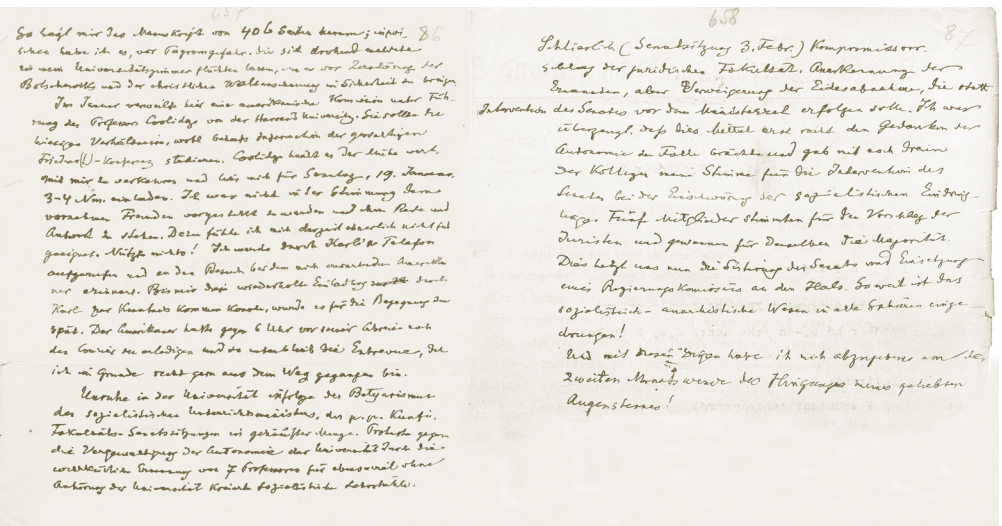 635
86
So liegt mir das Manuskript von 406 Seiten herum; inzwi-
schen habe ich es, vor Pogromgefahr, die sich drohend meldete
in mein Universitätszimmer flüchten lassen, um es vor Zerstörung der
und der christlichen Weltanschauung in Sicherheit zu bringen.
Im Januar verweilte hier eine amerikanische Komission unter Füh-
rung des Professors Coolidge von der Harvard University. Sie sollte die
hiesigen Verhältnisse, wohl behufs Information der großartigen
Friedens(!)-Konferenz studieren. Coolidge hielt es der Mühe wert,
mit mir zu verkehren und liess mich für Sonntag, 19. Januar,
3-4 Nm. einladen. Ich war nicht in der Stimmung dem
vornehmen Fremden vorgestellt zu werden und ihm Rede und
Antwort zu stehen. Dazu fühle ich mich derzeit nicht für
geeignet. Nützte nichts! Ich werde durch Karl via Telefon
aufgerufen und an den Besuch bei dem mich erwartenden Amerika-
ner erinnert. Bis mir die wiederholte Einladung durch
Karl zur Kenntnis kommen konnte, wurde es für die Begegnung zu
spät. Der Amerikaner hatte gegen 6 Uhr vor seiner Abreise noch
den Courier zu erledigen und so unterblieb die Entrevue, der
ich im Grunde recht gern aus dem Weg gegangen bin.
Unruhe in der Universität infolge des Betyarismus
des sozialistischen Unterrichtsministers, des p.p. Kunfi.
Fakultäts-Senatssitzungen in gehäufter Menge. Proteste gegen
die Vergewaltigung der Autonomie der Universität durch die
willkürliche Ernennung von 7 Professoren für ebensoviel ohne
Anhörung der Universität kreierte sozialistische Lehrstühle.
658
87
Schliesslich (Senatssitzung 3. Febr.) Kompromissvor-
schlag der juridischen Fakultät. Anerkennung der
Ernannten, aber Verweigerung der Eidesabnahme, die statt
Intervention des Senates vor dem Ministerrat erfolgen solle. Ich war
überzeugt, dass dies Mittel erst recht den Gedanken der
Autonomie zu Falle brächte und gab mit noch dreien
der Kollegen meine Stimme für die Intervention des
Senates bei der Einschwörung der sozialistischen Eindring-
linge. Fünf Mitglieder stimmten für den Vorschlag der
Juristen und gewannen für denselben die Majorität.
Dies hetzt uns nun die Sistierung des Senats und Einsetzung
eines Regierungskomissärs an den Hals. So weit ist das
sozialistisch-anarchistische Wesen in alle Sphären einge-
drungen!
Und mit diesen Dingen habe ich mich abzugeben um die
zweiten Monatswende des Hinganges meines geliebten
Augensternes!